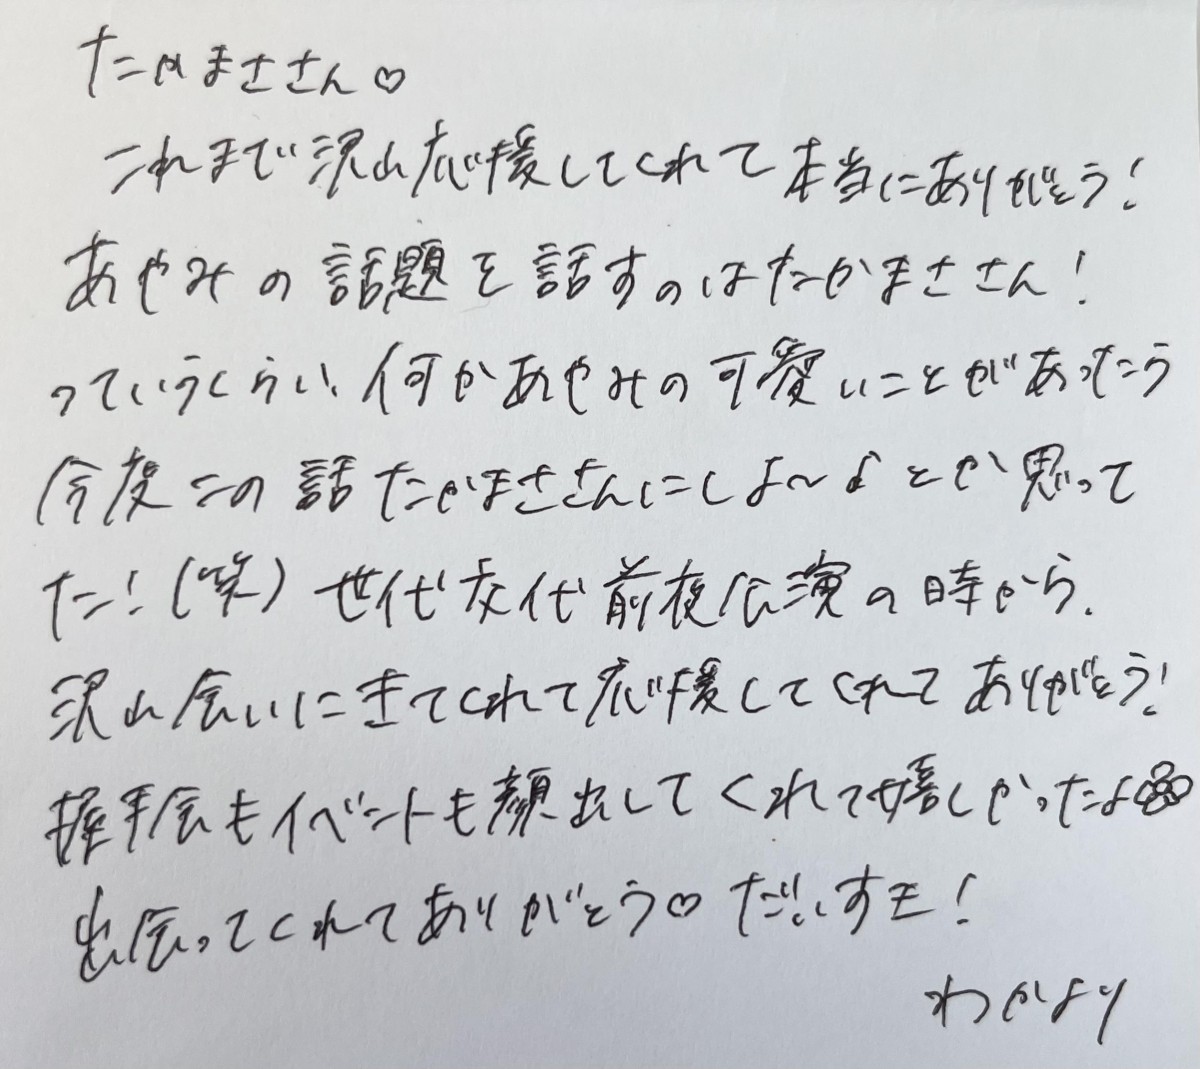 たかまささん♡
これまで沢山応援してくれて本当にありがとう!
あやみの話題を話すのはたかまささん!
っていうくらい、何かあやみの可愛いことがあったら
今度この話たかまささんにしよ〜よとか思って
た!(笑)世代交代前夜公演の時から、
沢山会いにきてくれて応援してくれてありがとう!
握手会もイベントも顔出してくれて嬉しかったよ
出会ってくれてありがとう♡だいすき!
わかより